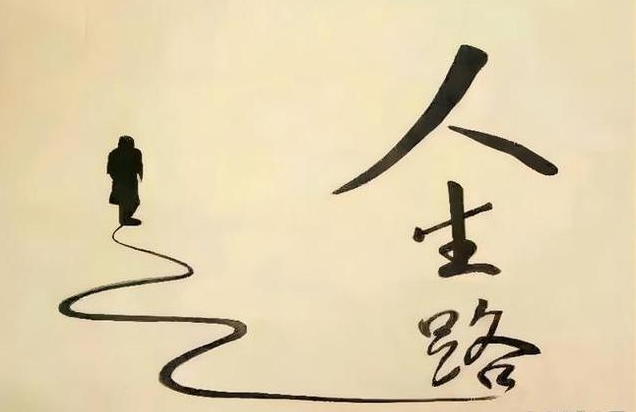 人
生
路